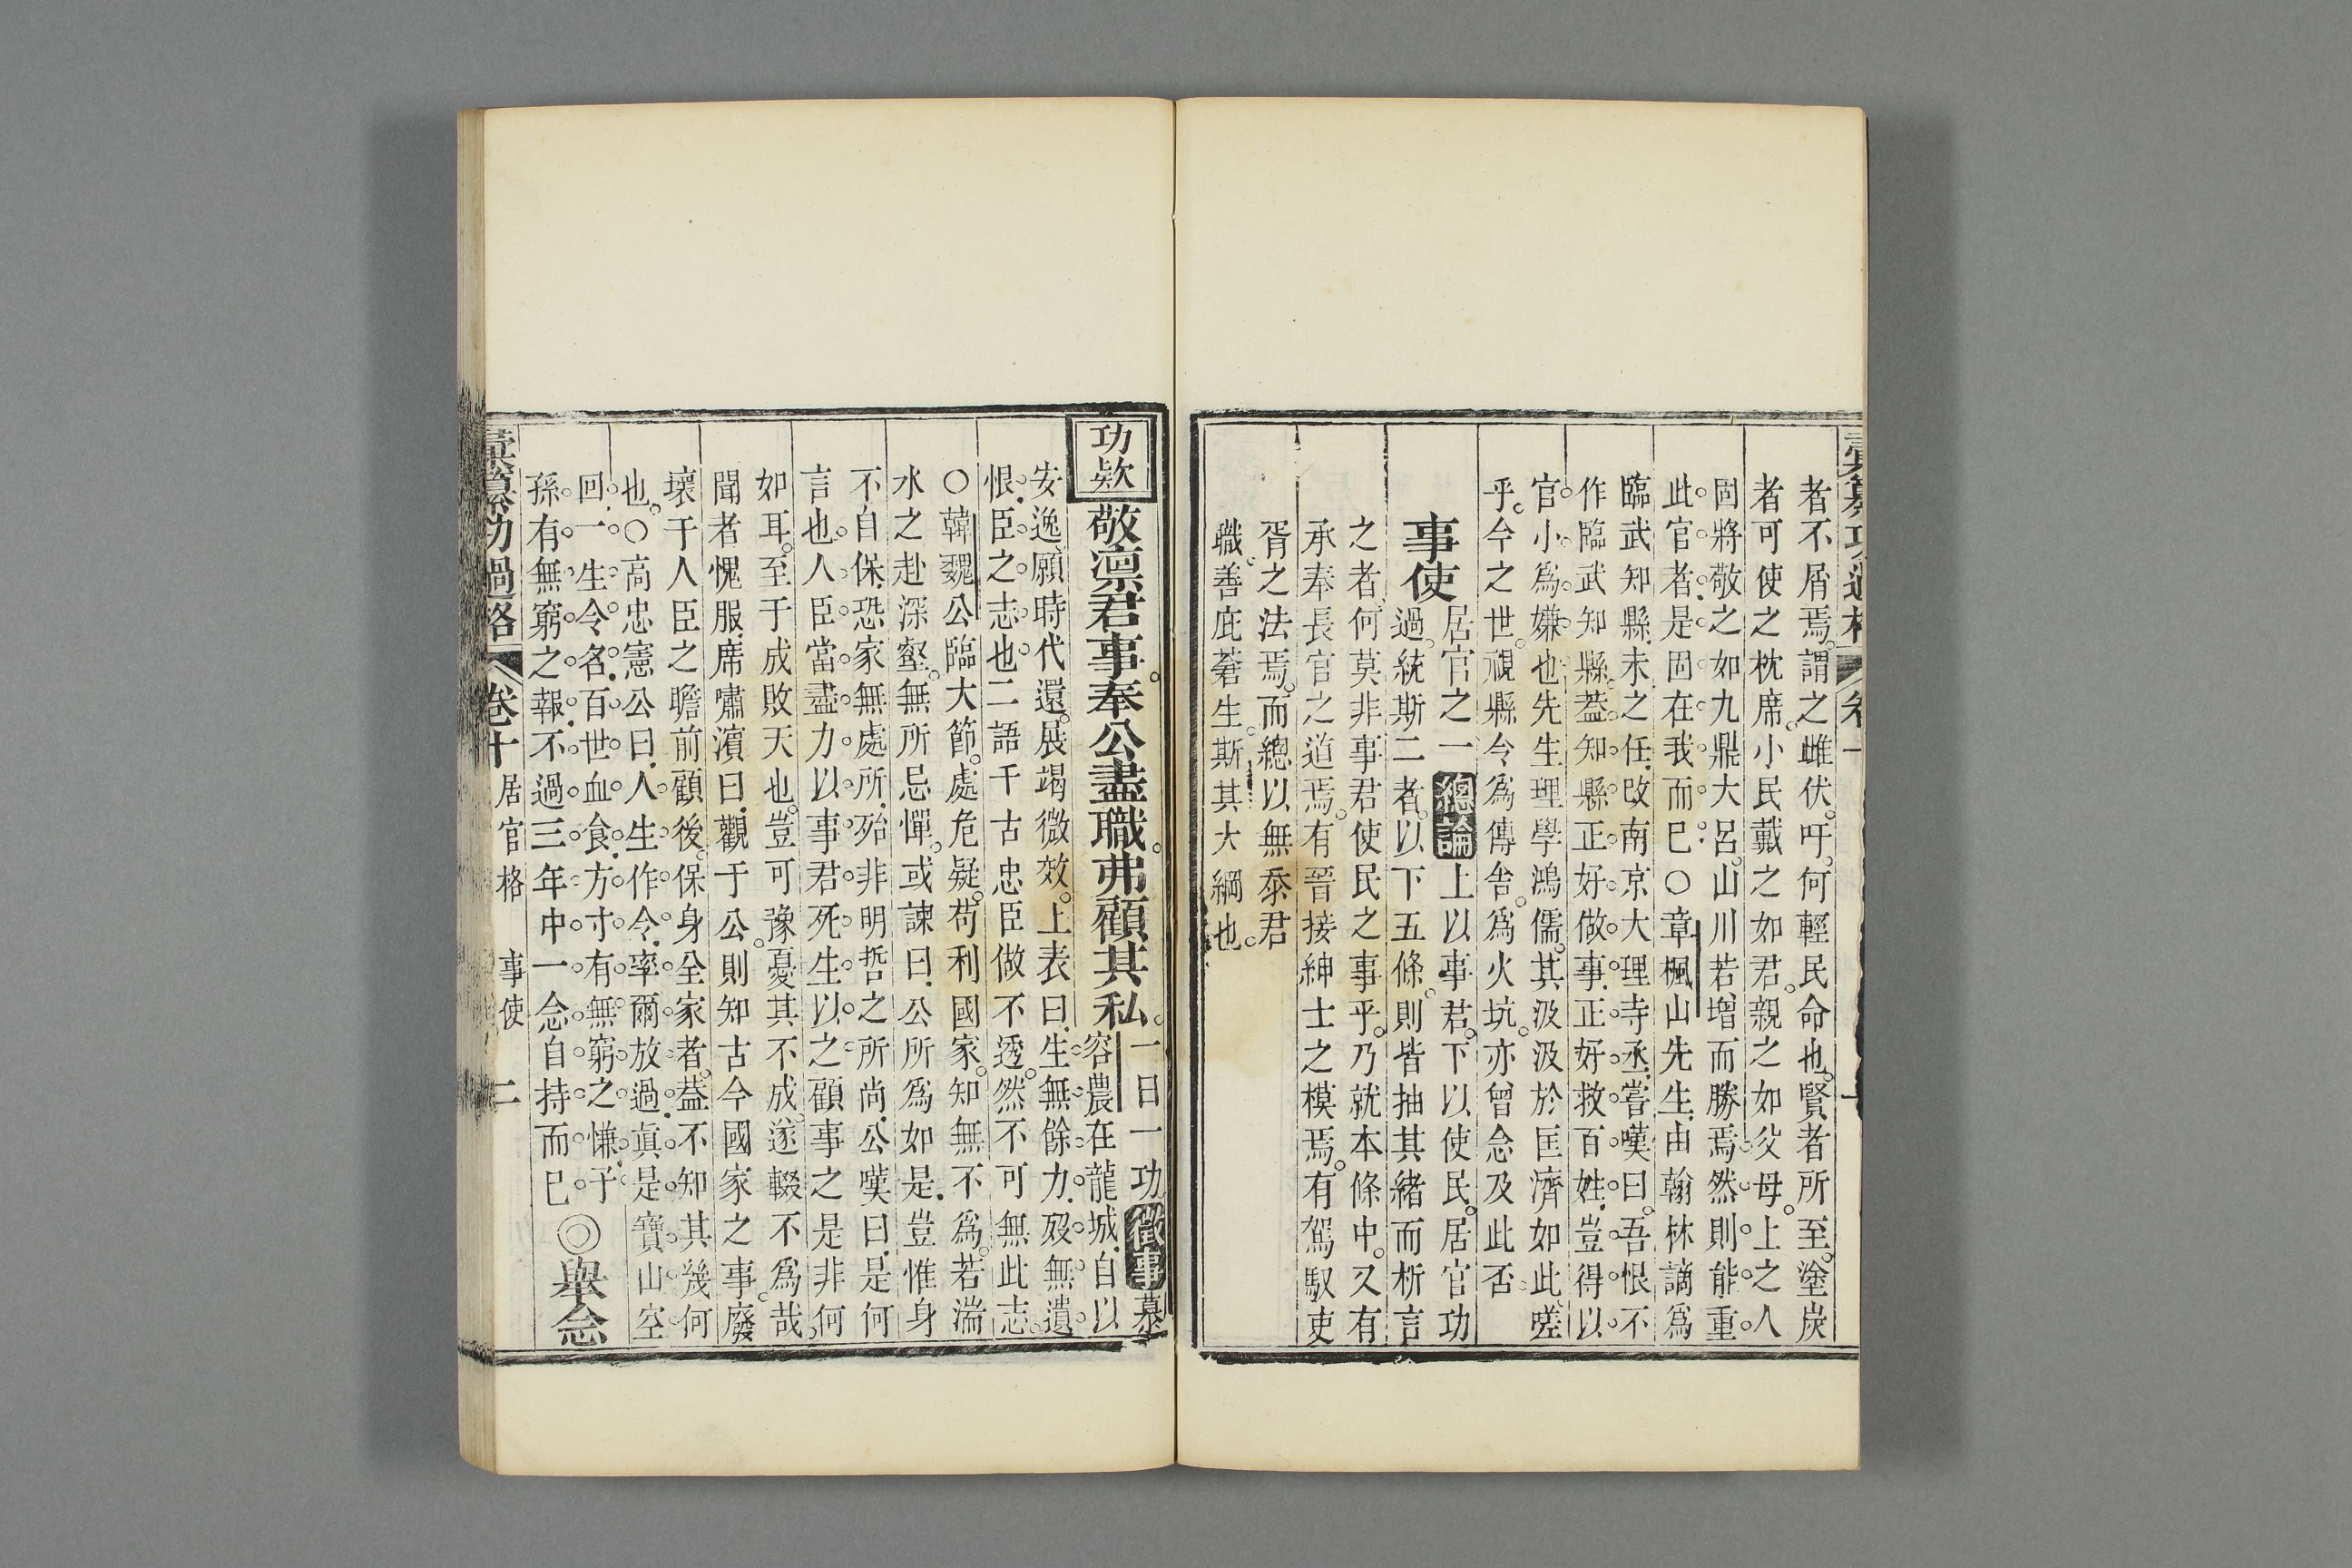 彚纂功過格 卷十
者不屑焉。謂之雌伏。吁。何輕民命也。賢者所至。塗炭
者可使之枕席。小民戴之如君。親之如父母。上之人
固將敬之如九鼎大呂。山川若增而勝焉。然則能重
此官者。是固在我而已○章楓山先生。由翰林謫爲
臨武知縣。未之任。改南京大理寺丞。嘗嘆曰。吾恨不
作臨武知縣。葢知縣正好做事。正好救百姓。豈得以
官小爲嫌也。先生理學鴻儒。其汲汲於匡濟如此。嗟
乎。今之世。視縣令爲傳舍。爲火坑。亦曾念及此否
事使 居官之一 總論 上以事君。下以使民。居官功
過。統斯二者。以下五條。則皆抽其緒而析言
之者。何莫非事君使民之事乎。乃就本條中。又有
承奉長官之道焉。有晉接紳士之模焉。有駕馭吏
胥之法焉。而總以無忝君
職。善庇蒼生。斯其大綱也。
功欵 敬凛君事。奉公盡職。弗顧其私。一日一功 徵事 慕
容農在龍城。自以
安逸。願時代還。展竭微效。上表曰。生無餘力。歿無遺
恨。臣之志也。二語千古忠臣做不透。然不可無此志。
○韓魏公臨大節。處危疑。苟利國家。知無不爲。若湍
水之赴深壑。無所忌憚。或諫曰。公所爲如是。豈惟身
不自保。恐家無處所。殆非明哲之所尚。公嘆曰。是何
言也。人臣當盡力以事君。死生以之。顧事之是非何
如耳。至于成敗天也。豈可豫憂其不成。遂輟不爲哉。
聞者愧服。席嘯濵曰。觀于公。則知古今國家之事。廢
壞于人臣之瞻前顧後。保身全家者。葢不知其幾何
也。○高忠憲公曰。人生作令。率爾放過。眞是寶山空
回。一生令名。百世血食。方寸有無窮之慊。子
孫有無窮之報。不過三年中一念自持而已◎舉念
彚纂功過格 卷十 居官格 事使 二